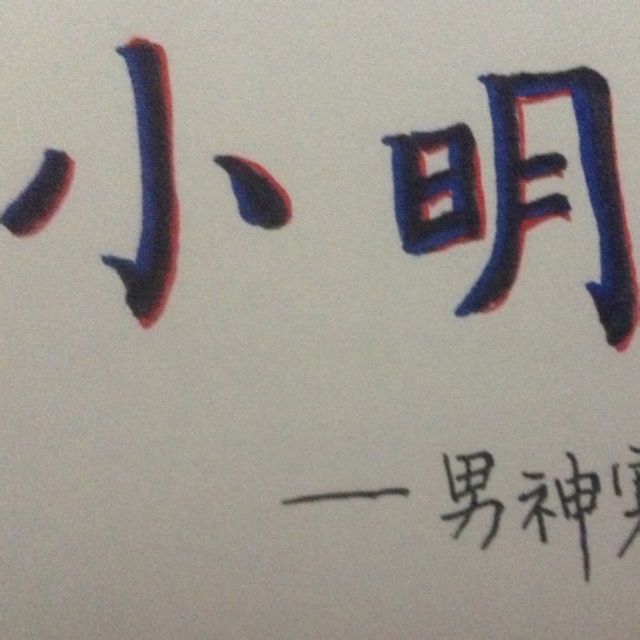 小明
—男神